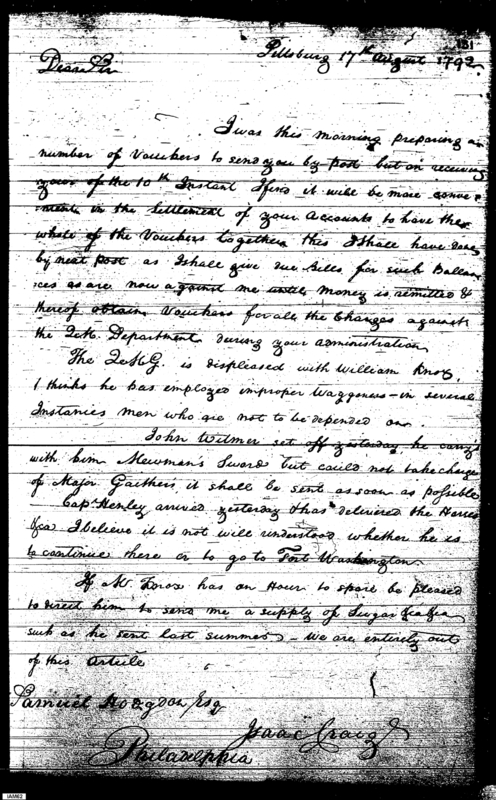 151
Pittsburg 17th August 1792
Dear Sir
I was this morning preparing a
number of Vouchers to send you by post but on receiving
yours of the 10th Instant I find it will be more conve
nient in the Settlement of your Accounts to have the
whole of the Vouchers together this I shall have done
by next post as I shall give due Bills for such Ballan
ces as are now against me until Money is remitted &
thereof obtain Vouchers for all the Charges against
the Q.M. Department during your administration
The Q.M.G. is displeased with William Knox,
I thinks he has employed improper Waggoners - in several
Instances men who are not to be depended on.
John Wilmer set off yesterday he carry'd
with him Newman's Sword but could not take charge
of Major Gaithers it shall be sent as soon as possible
Capt. Henley arrived yesterday & has delivered the Horses
&ca I believe it is not will understood whether he is
to continue there or to go to Fort Washington
If Mr. Knox has an Hour to spare be pleased
to direct him to send me a supply of Sugar &ca &ca
such as he sent last summer - We are entirely out
of this Article
Samuel Hodgdon Esq
Isaac Craig
Philadelphia
IAM62